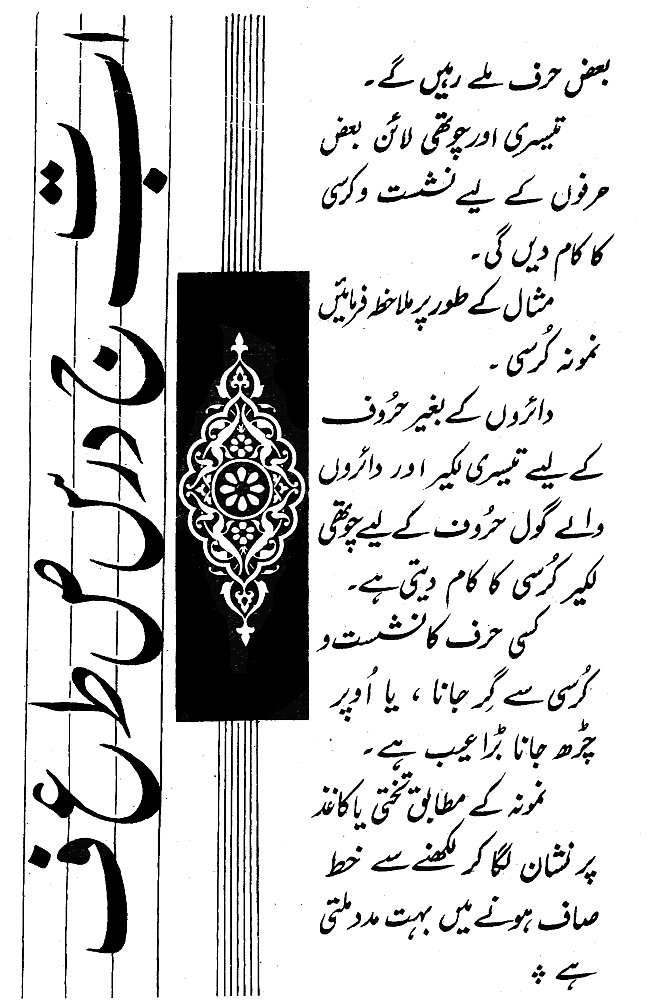 بعض حرف ملے رہیں گے۔
تیسری اور چوتھی لائن بعض
حرفوں کے لیے نشست و کرسی
کا کام دیں گی۔
مثال کے طور پر ملاحظہ فرمائیں
نمونہ کُرسی ۔
دائروں کے بغیر حرُوف
کے لیے تیسری لکیر اور دائروں
والے گول حرُوف کے لیے چوتھی
لکیر کُرسی کا کام دیتی ہے۔
کسی حرف کا نشست و
کُرسی سے گِر جانا ، یا اُوپر
چڑھ جانا بڑا عیب ہے۔
نمونہ کے مطابق تختی یا کاغذ
پر نشان لگا کر لکھنے سے خط
صاف ہونے میں بہت مدد ملتی
ہے ؞
ا ب ت ج د ر س ص ط ع ف